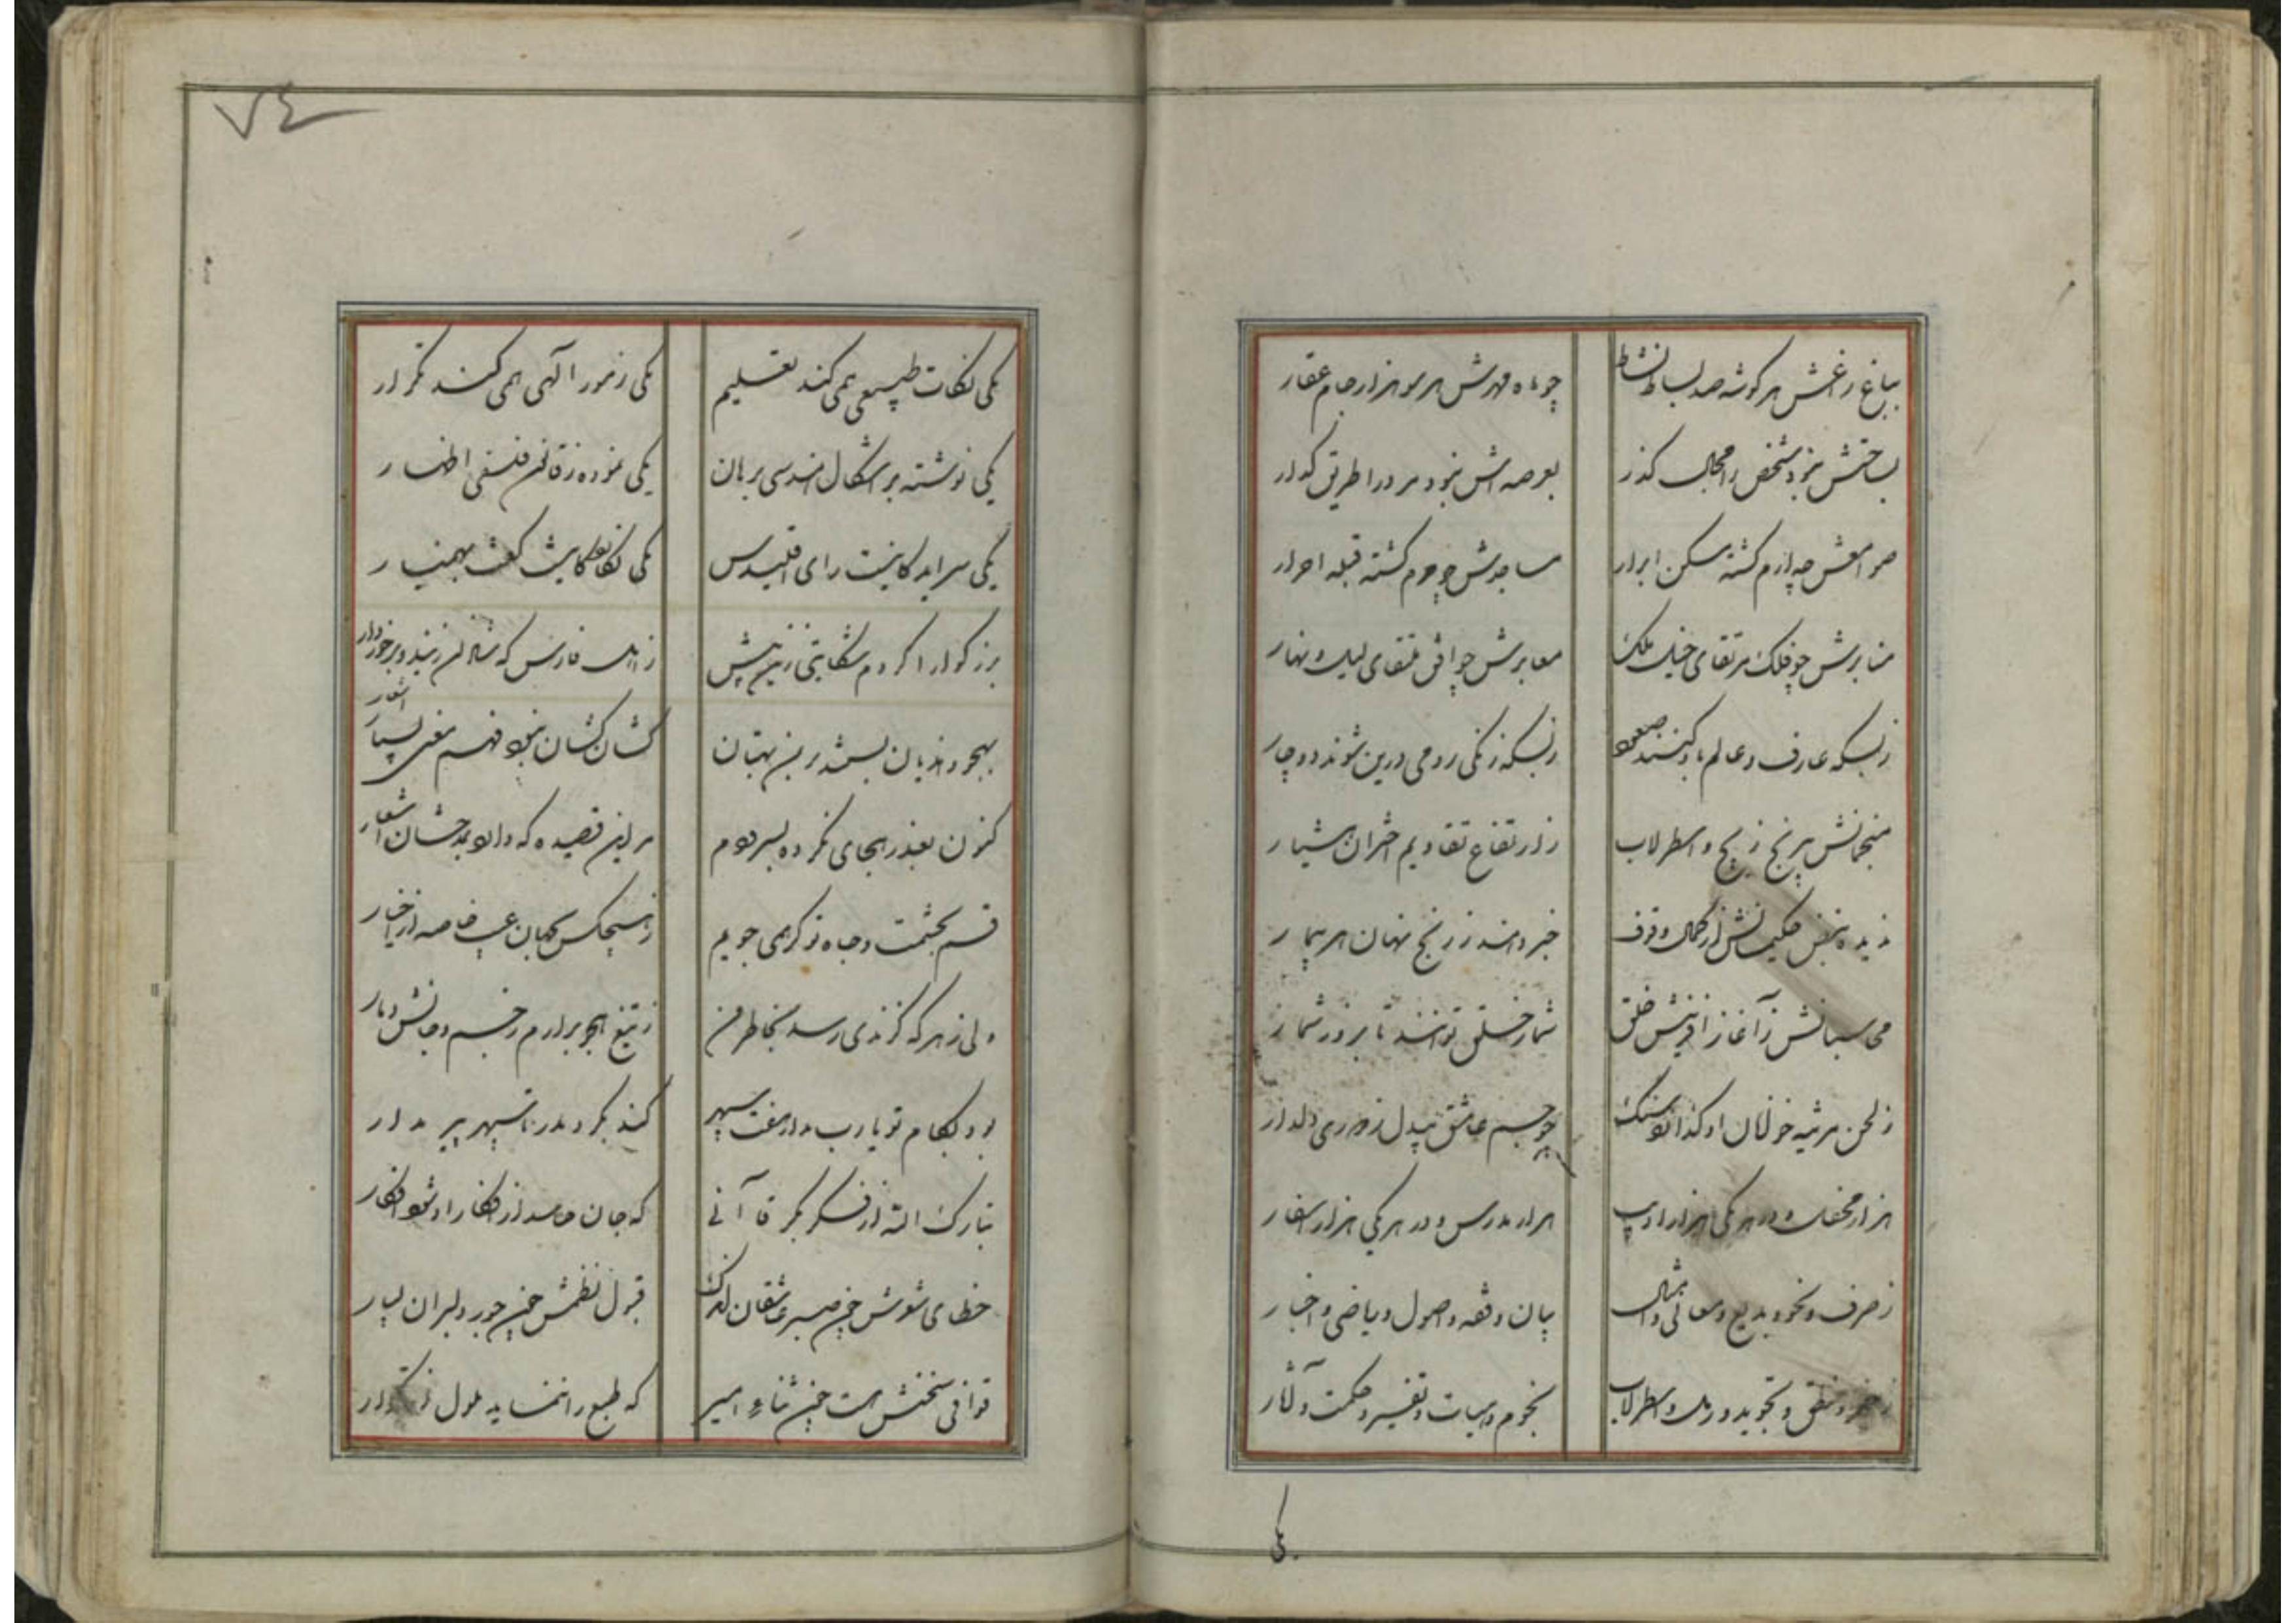 بباغ راغش هر گوشه صد بساط نشاط
چو ماه مهرش هر سو هزار جام عقار
بساحتش نبود شخص را مجال گذر
بعرصه اش نبود مرد را طریق گدار
صوامعش چه ارم گشته مسکن ابرار
مساجدش چو حرم گشته قبله احرار
منابرش چو فلک مرتقای خیل ملک
معابرش چو افق ملتقای لیل و نهار
ز بسکه عارف و عالم باو کنند صعود
ز بسکه زنگی رومی درین شوند دوچار
منجمانش پیرنج زیج و اسطرلاب
ز ارتفاع تقاویم اختران هشیار
ندیده نبض حکیمانش از کمال وقوف
خبر دهند ز رنج نهان هر بیمار
محاسبانش ز آغاز آفرینش خلق
شمار خلق توانند تا بروز شمار
ز لحن مرثیه خوانان او گدازد سنگ
چو جسم عاشق بیدل ز دوری دلدار
هزار محفل و در هر یکی هزار ادیب
هزار مدرس و در هر یکی هزار اسفار
ز صرف و نحو و بدیع و معانی و امثال
بیان و فقه و اصول و ریاضی و اخبار
منطق و تجوید و رمل و اسطرلاب
نجوم و هیات و تفسیر و حکمت و آثار
یکی
۷۴
یکی نکات طبیعی همی کند تعلیم
یکی رموز الهی همی کند تکرار
یکی نوشته بر اشکال هندسی برهان
یکی نموده ز قانون فلسفی اظهار
یکی سراید کاینست رای اقلیدس
یکی نگاشته کاینست گفت بهمنیار
بزرگوارا کردم شکایتی زین پیش
ز اهل فارس که شادان زیند و برخوردار
بهجو و هذیان بستند بر من بهتان
کشان کشان نبود فهم معنی اشعار
کنون بعذر هجای نکرده بسرودم
مر این قصیده که دارد بمدحشان اشعار
قسم بحشمت و جاه تو گر همی جویم
ز هیچکس بجهان عیب خاصه از اخیار
ولی ز هر که گزندی رسد بخاطر من
ز تیغ هجو برآرم ز جسم و جانش دمار
بود بکام تو یا رب مدار هفت سپهر
کند بگرد مدر تا سپهر پیر مدار
تبارک الله از فکر بکر قاآنی
که جان حاسد از افکار او شود افکار
خطای شوش چون صبر عاشقان اندک
قبول نظمش چون جور دلبران بسیار
قوافی سخنش هست چون ثناء امیر
که طبع را ننماید ملول